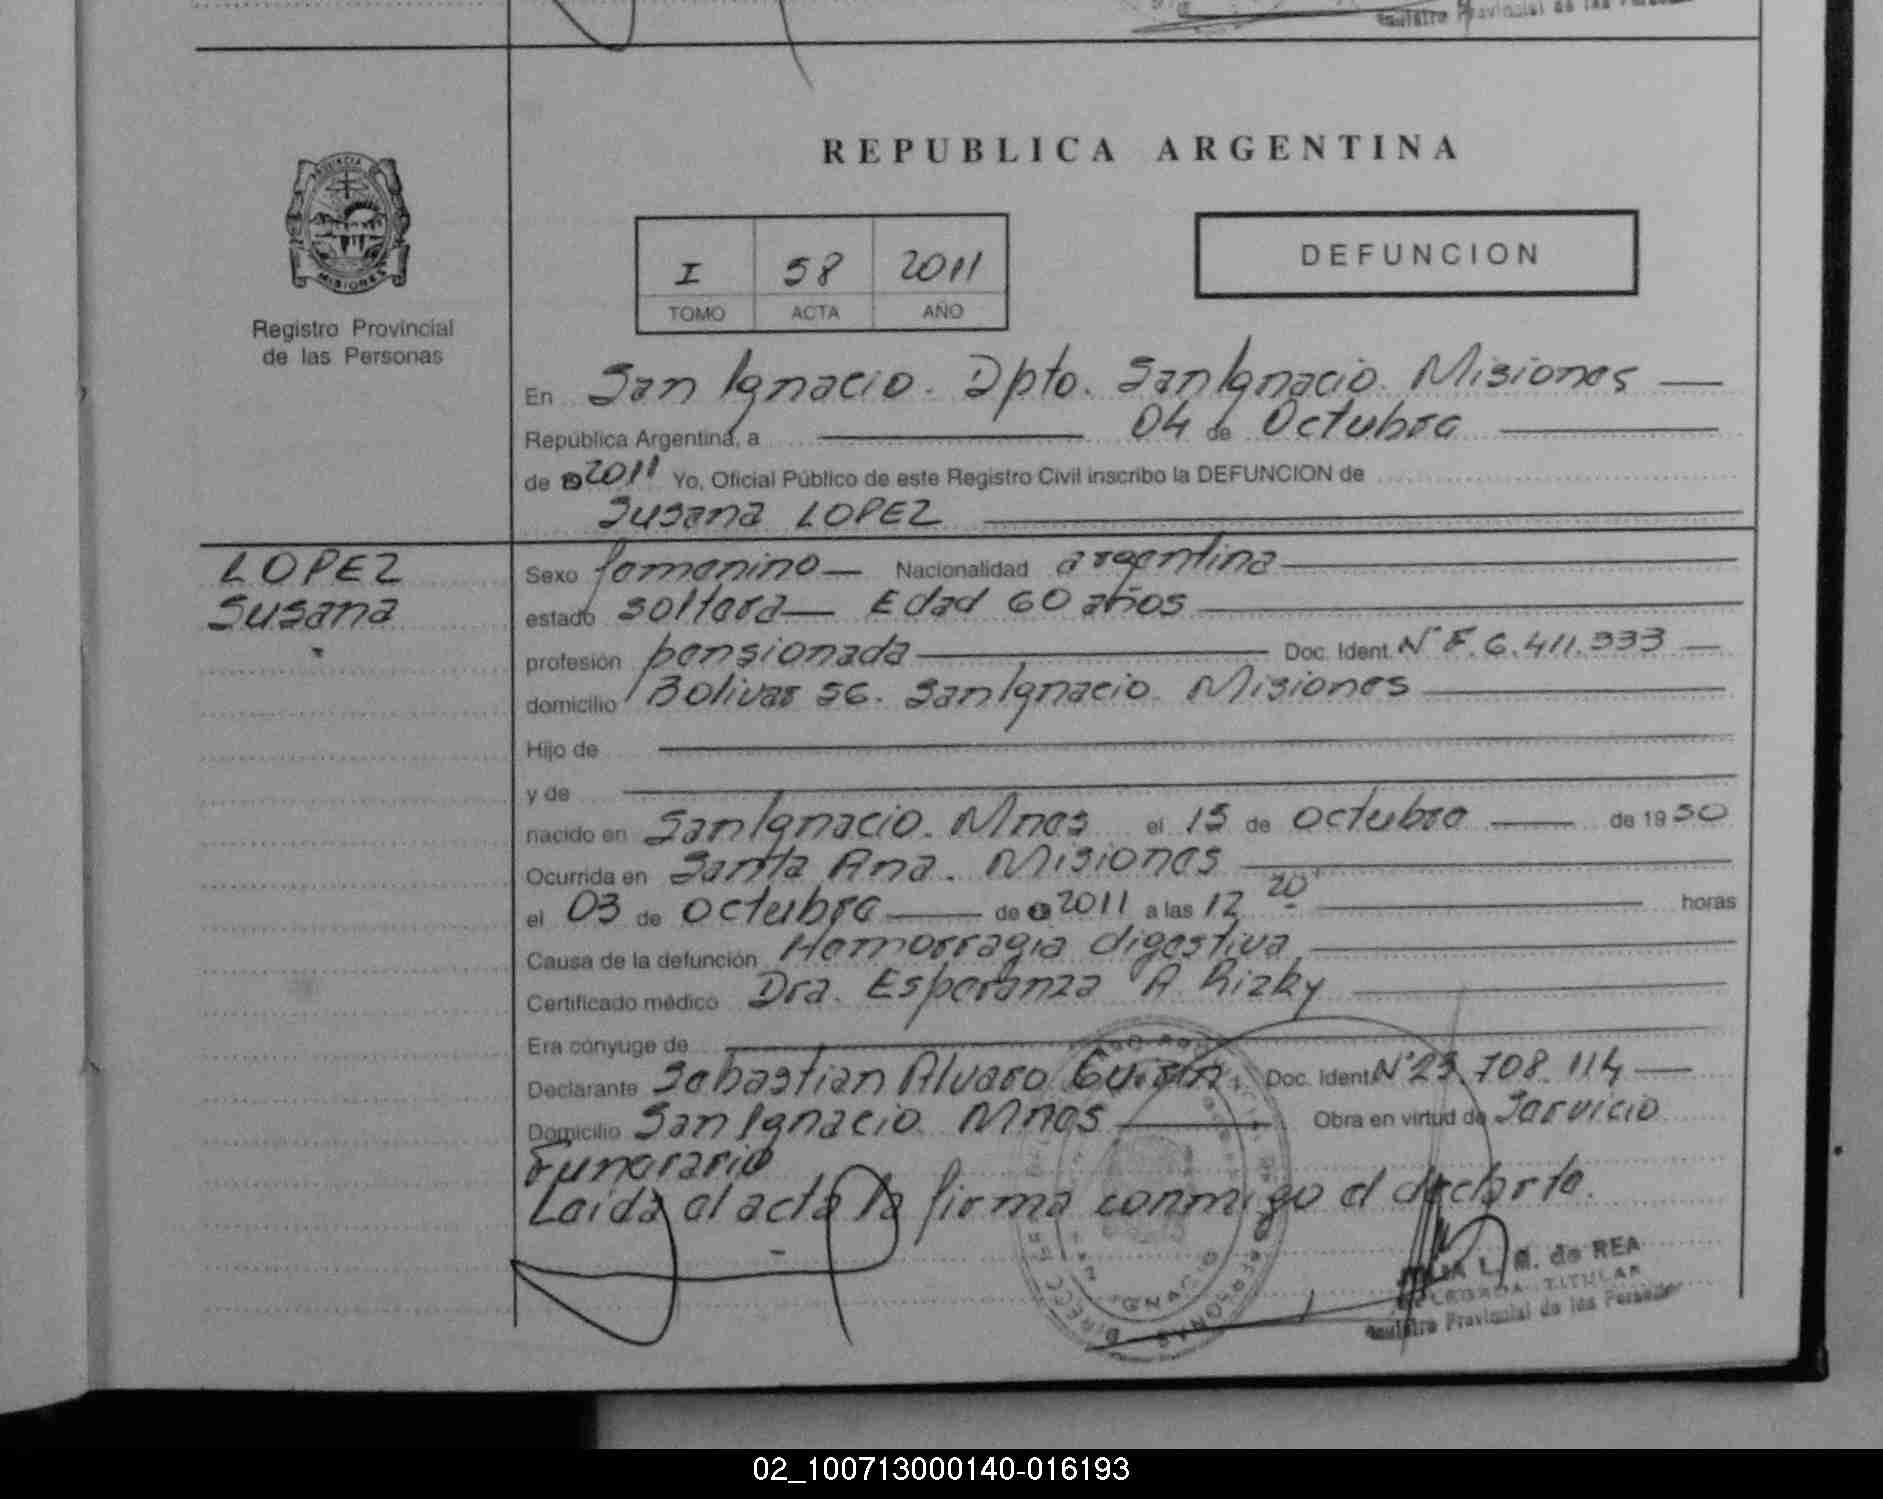 Registro Provincial de las Personas
REPUBLICA ARGENTINA
PROVINCIA DE
MISIONES
Registro Provincial
de las Personas
I 58 2011
TOMO ACTA AÑO
DEFUNCION
En San Ignacio. Dpto. San Ignacio. Misiones
República Argentina, a 04 de Octubre
de 2011 Yo, Oficial Público de este Registro Civil inscribo la DEFUNCION de
Susana LOPEZ
LOPEZ
Susana
Sexo femenino Nacionalidad argentina
estado soltera Edad 60 años
profesión pensionada Doc. Ident. Nº F. 6.411.333
domicilio Bolivar 56. San Ignacio. Misiones
Hijo de
y de
nacido en San Ignacio. Mnes el 15 de octubre de 1950
Ocurrida en Santa Ana. Misiones
el 03 de octubre de 2011 a las 12 20 horas
Causa de la defunción Hemorragia digestiva
Certificado médico Dra. Esperanza A. Rizky
Era cónyuge de
Declarante Sebastian Alvaro Doc. Ident. Nº 23.708.114
Domicilio San Ignacio Mnes Obra en virtud de Servicio
Funerario
Leida el acta la firma conmigo el declarte.
L. M. de REA
DELEGADA TITULAR
Registro Provincial de las Personas
02_100713000140-016193